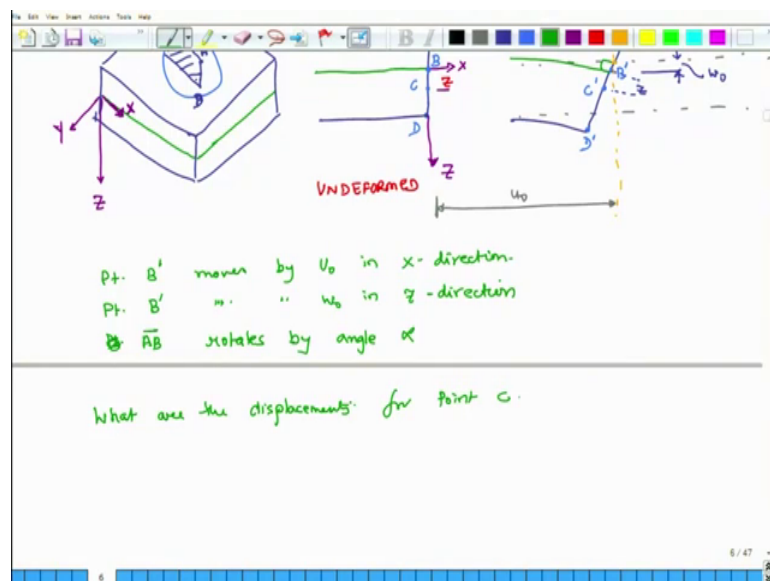 File Edit View Insert Actions Tools Help
B I
B X
C Z
D
Z
B' w₀
C' Z
D'
u₀
Y X
Z
B
UNDEFORMED
Pt. B' moves by U₀ in X-direction.
Pt. B' " " w₀ in Z-direction
AB rotates by angle α
What are the displacements for Point C.
6 / 47
6